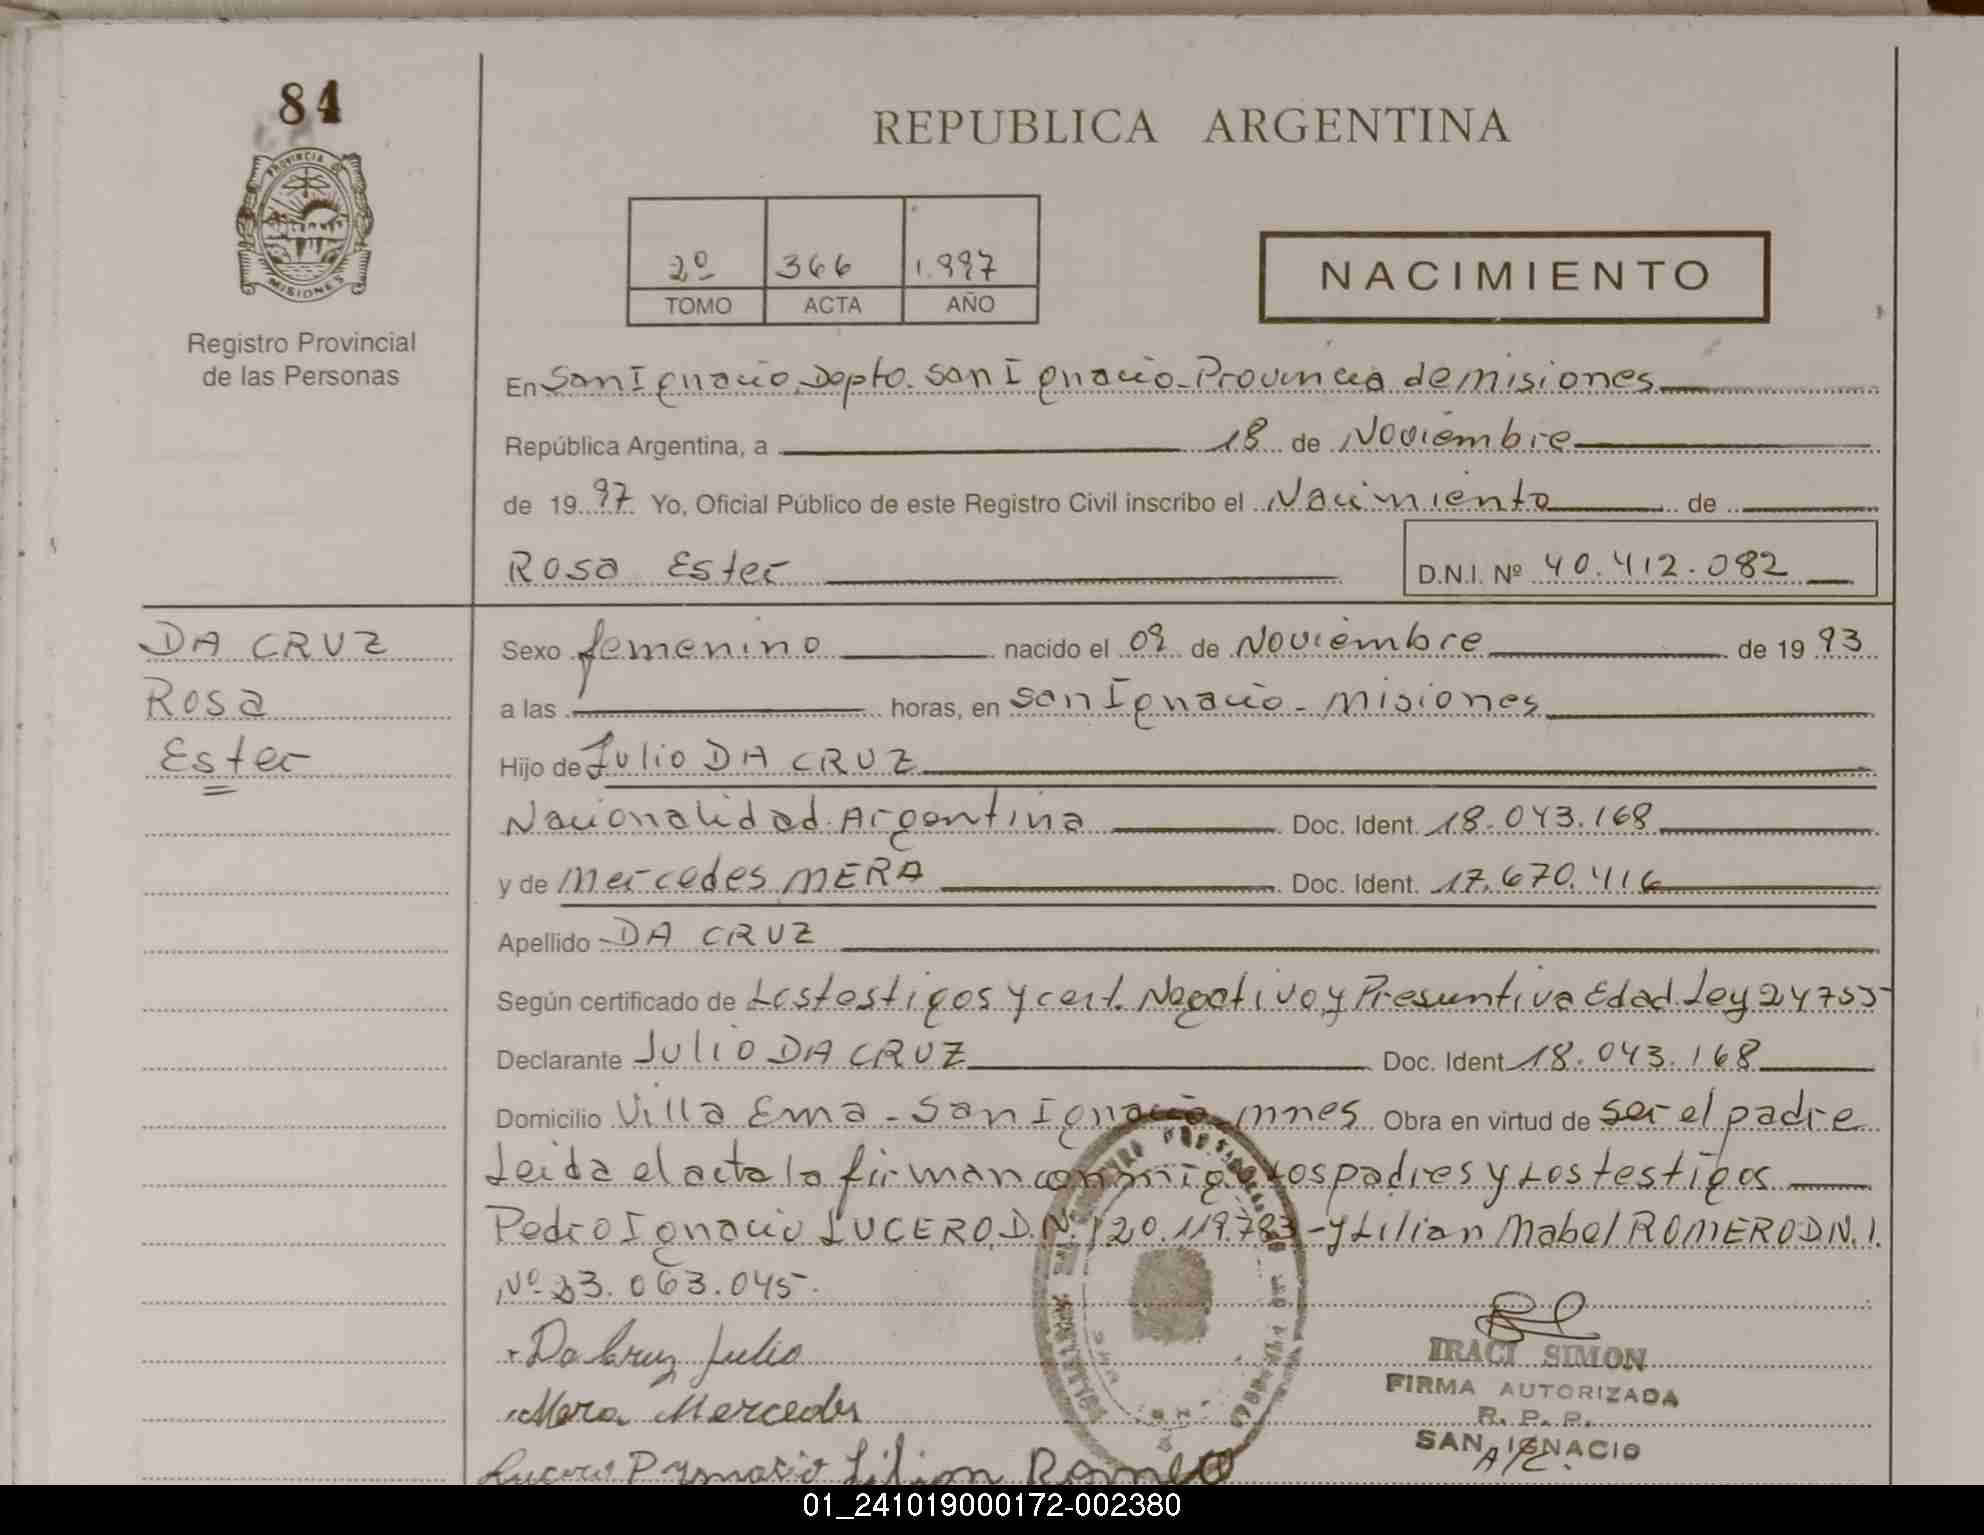 84
PROVINCIA DE
MISIONES
Registro Provincial
de las Personas
REPUBLICA ARGENTINA
2º 366 1.997
TOMO ACTA AÑO
NACIMIENTO
En San Ignacio, Dopto. San Ignacio - Provincia de Misiones
República Argentina, a 18 de Noviembre
de 1997 Yo, Oficial Público de este Registro Civil inscribo el Nacimiento de
Rosa Ester D.N.I. Nº 40.412.082
DA CRUZ
Rosa
Ester
Sexo femenino nacido el 09 de Noviembre de 1993
a las horas, en San Ignacio - Misiones
Hijo de Julio DA CRUZ
Nacionalidad Argentina Doc. Ident. 18.043.168
y de Mercedes MERA Doc. Ident. 17.670.416
Apellido DA CRUZ
Según certificado de Los testigos y cert. Negativo y Presuntiva Edad. Ley 24755
Declarante Julio DA CRUZ Doc. Ident 18.043.168
Domicilio Villa Ema - San Ignacio mnes Obra en virtud de ser el padre
Leida el acta la firman conmigo Los padres y Los testigos
Pedro Ignacio LUCERO D.N.I 20.119.783 - y Lilian Mabel ROMERO D.N.I.
Nº 23.063.045.
Da Cruz Julio
Mera Mercedes
IRACI SIMON
FIRMA AUTORIZADA
R. P. P.
SAN IGNACIO
A/C.
Lucero P Ygnacio Lilian Romero
01_241019000172-002380